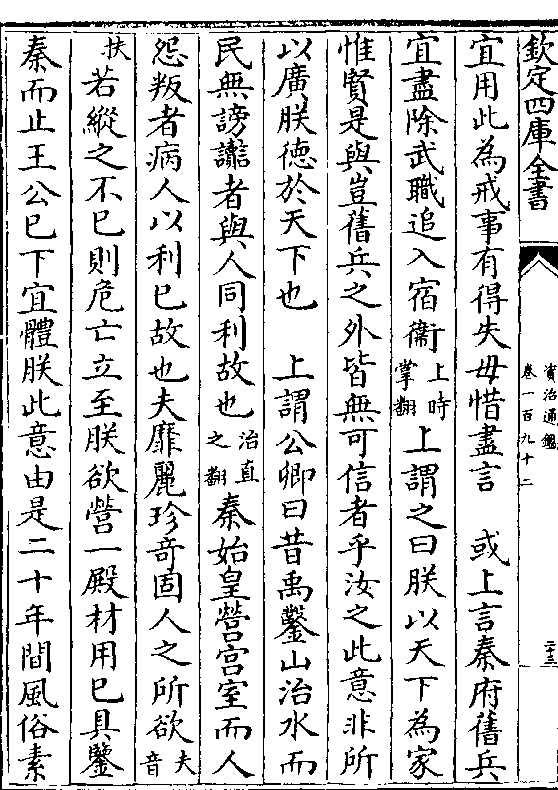 欽定四庫全書
資治通鑑
卷一百九十二
二十三
宜用此為戒事有得失毋惜盡言　或上言秦府舊兵
宜盡除武職追入宿衞上時掌翻上謂之曰朕以天下為家
惟賢是與豈舊兵之外皆無可信者乎汝之此意非所
以廣朕德於天下也　上謂公卿曰昔禹鑿山治水而
民無謗讟者與人同利故也治直之翻秦始皇營宫室而人
怨叛者病人以利已故也夫靡麗珍竒固人之所欲夫音
扶若縱之不已則危亡立至朕欲營一殿材用已具鑒
秦而止王公已下宜體朕此意由是二十年間風俗素